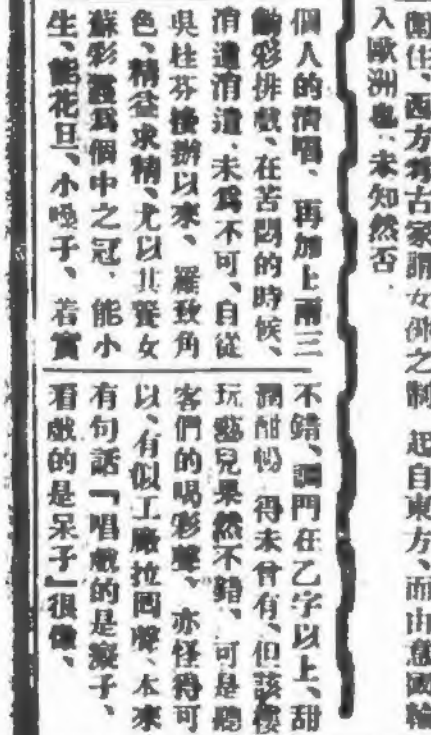 衛住、西方考古家謂女伶之制 起自東方、而由意國輸
入歐洲也、未知然否.
個人的清唱、再加上兩三
齣彩排戲、在苦悶的時候、
消遣消遣、未爲不可、自從
吳桂芬接辦以來、羅致角
色、精益求精、尤以其養女
蘇彩霞爲個中之冠、能小
生、能花旦、小嗓子、若實
不錯、調門在乙字以上、甜
潤酣暢 得未曾有、但該樓
玩藝兒果然不錯、可是聽
客們的喝彩聲、亦怪得可
以、有似工廠拉回聲、本來
有句話『唱戲的是瘋子、
看戲的是呆子』很像、